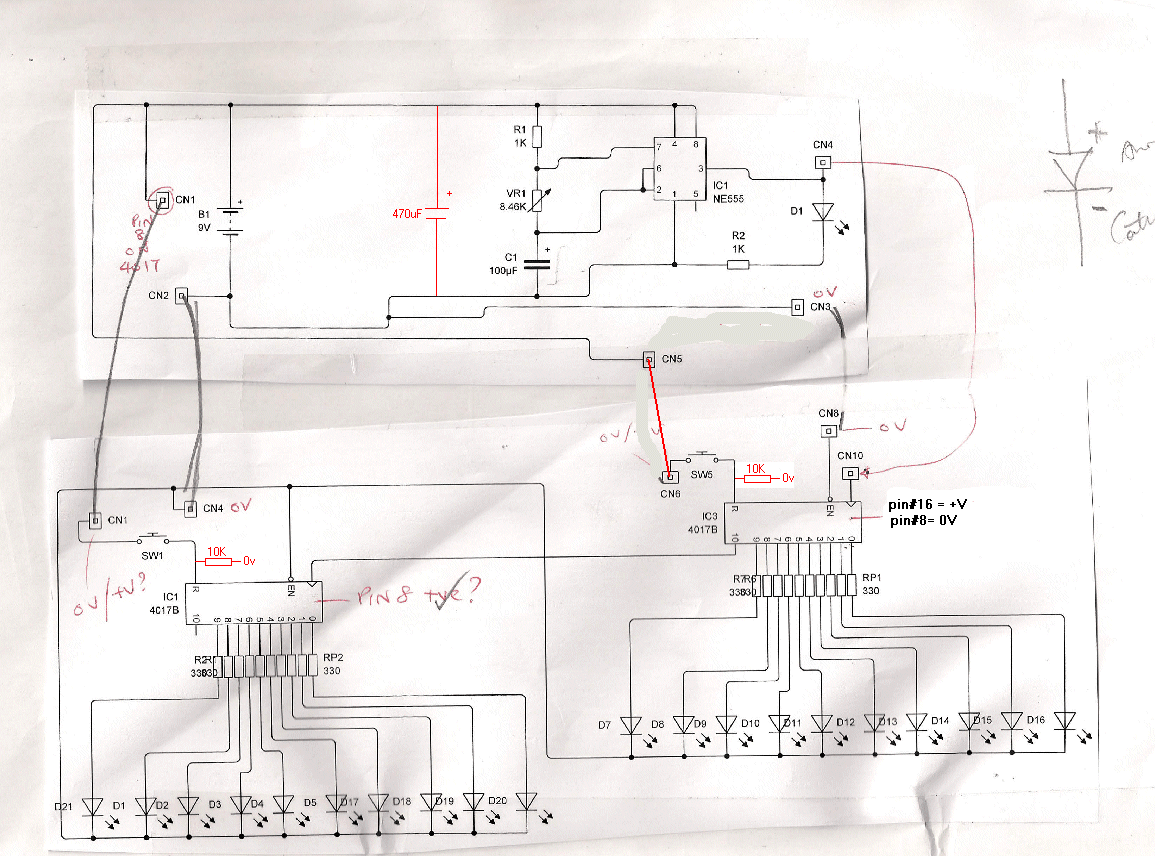 R1
1K
VR1
8.46K
C1
+
100µF
470uF
+
B1
9V
+
CN1
PIN
8
OR
4017
CN2
7
6
2
4
8
3
1
5
IC1
NE555
CN4
D1
R2
1K
0V
CN3
CN5
+
-
CN8
0V
CN10
0V/
CN6
SW5
10K
0v
R
EN
IC3
4017B
pin#16 = +V
pin#8= 0V
10
9
8
7
6
5
4
3
2
1
0
RP1
330
CN1
CN4
0V
SW1
10K
0v
0V/+V?
R
EN
IC1
4017B
PIN 8 +ve?
10
9
8
7
6
5
4
3
2
1
0
RP2
330
D7
D8
D9
D10
D11
D12
D13
D14
D15
D16
D21
D1
D2
D3
D4
D5
D17
D18
D19
D20